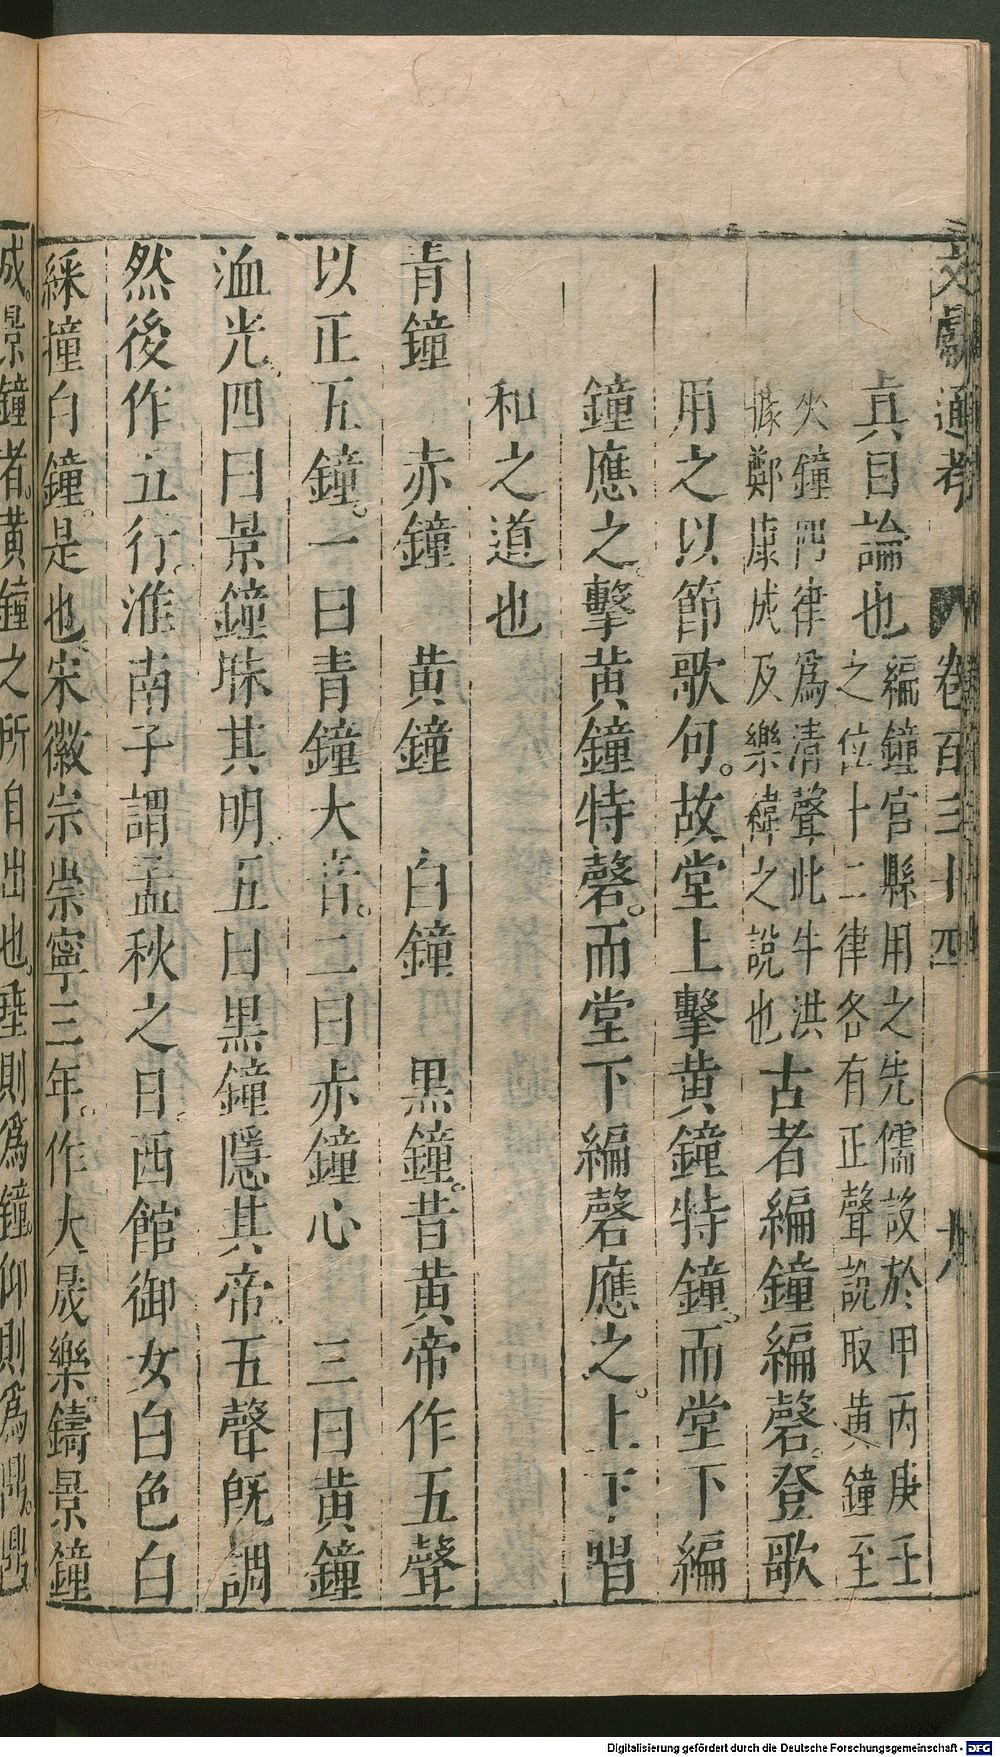 文獻通考 卷百三十四 十八
真目論也編鐘宮縣用之先儒設於甲丙庚壬
之位十二律各有正聲說取黃鐘至
夾鐘四律爲淸聲此牛洪
據鄭康成及樂緯之說也古者編鐘編磬登歌
用之以節歌句。故堂上擊黃鐘特鐘。而堂下編
鐘應之。擊黃鐘特磬。而堂下編磬應之。上下唱
和之道也
青鐘 赤鐘 黃鐘 白鐘 黑鐘。昔黃帝作五聲
以正五鐘。一曰青鐘大音。二曰赤鐘心 三曰黃鐘
洫光。四曰景鐘昧其明。五曰黑鐘隱其帝。五聲旣調
然後作五行。淮南子謂孟秋之日。西館御女白色白
綵撞白鐘。是也。宋徽宗崇寧三年。作大晟樂。鑄景鐘
成。景鐘者。黃鐘之所自出也。垂則爲鐘。仰則爲鼎。鼎
Digitalisierung gefördert durch die Deutsche Forschungsgemeinschaft - DFG